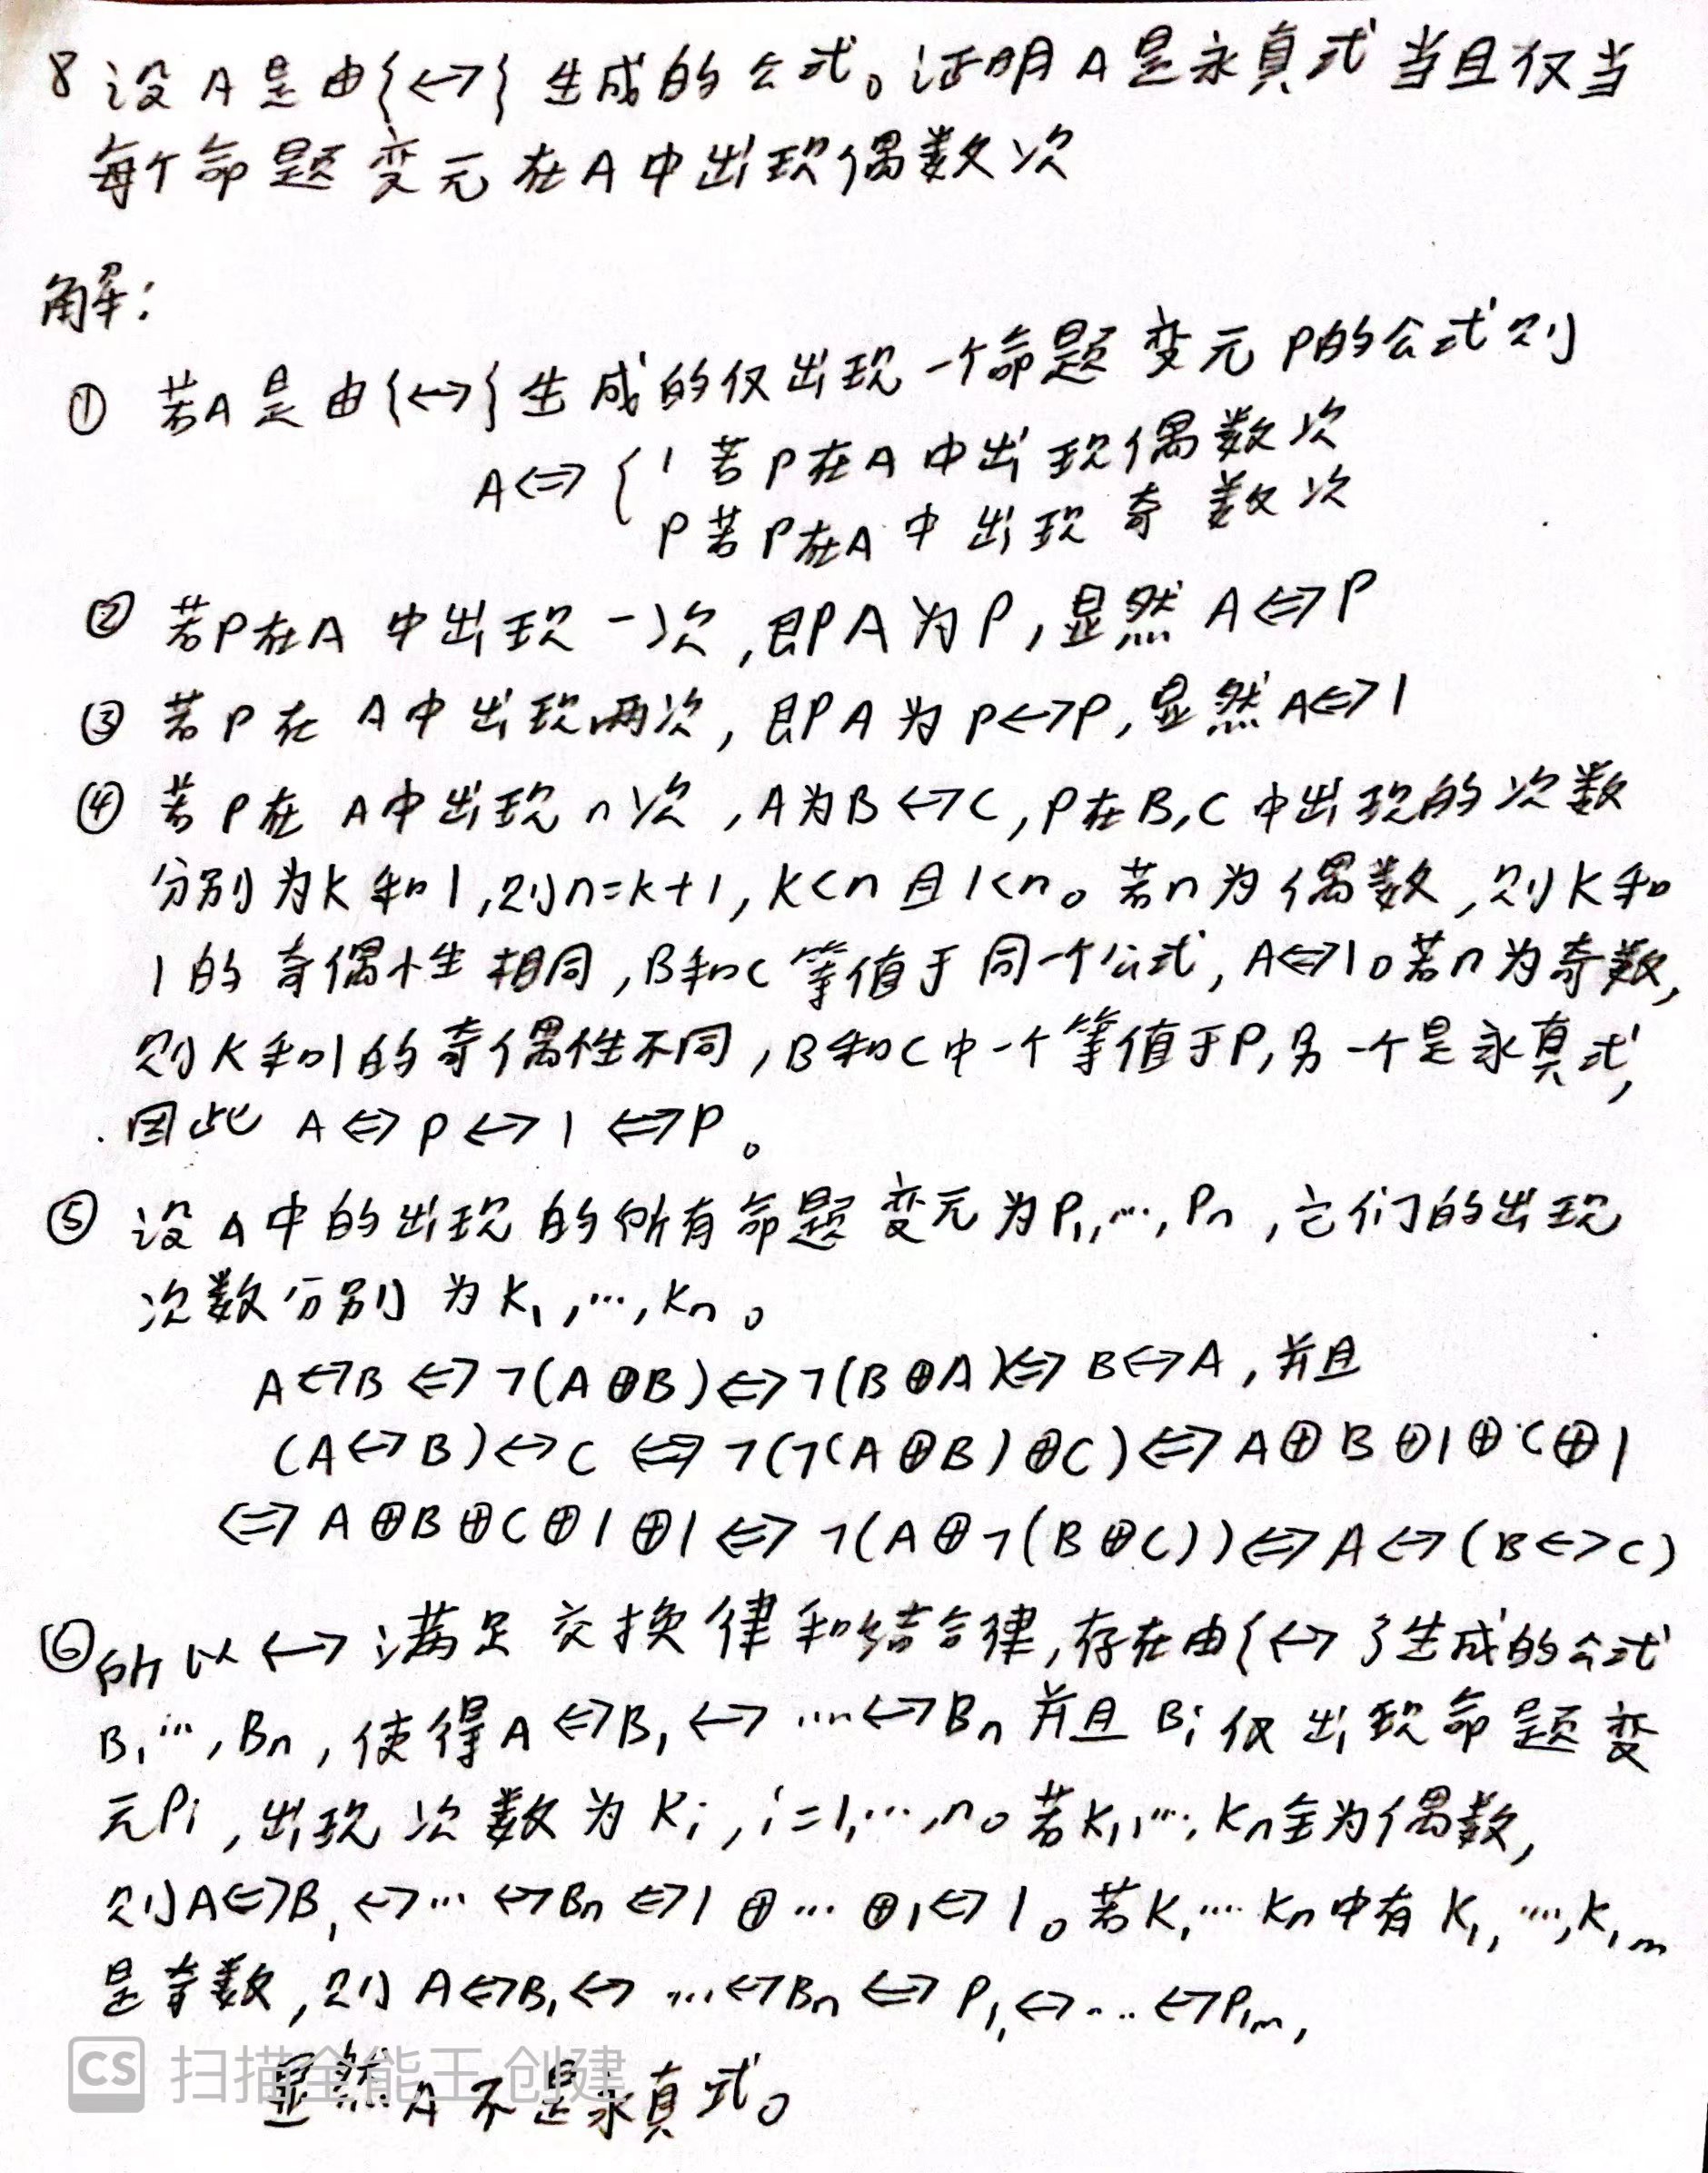 8 设 A 是由{↔}生成的公式。证明 A 是永真式当且仅当
每个命题变元在 A 中出现偶数次
解:
① 若A是由{↔}生成的仅出现一个命题变元 P的公式则
A⇔{ 1 若P在A中出现偶数次
P若P在A中出现奇数次
② 若P在A中出现一次,即A为P,显然 A⇔P
③ 若P在A中出现两次,即A为P↔P,显然A⇔1
④ 若P在A中出现n次,A为B↔C,P在B,C中出现的次数
分别为k和l,则n=k+l,k<n且l<n。若n为偶数,则k和
l的奇偶性相同,B和C等值于同一个公式,A⇔1。若n为奇数,
则k和l的奇偶性不同,B和C中一个等值于P,另一个是永真式,
因此 A⇔P↔1⇔P。
⑤ 设A中的出现的所有命题变元为P₁,…,Pn,它们的出现
次数分别为k₁,…,kn。
A↔B⇔¬(A⊕B)⇔¬(B⊕A)⇔B↔A,并且
(A↔B)↔C⇔¬(¬(A⊕B)⊕C)⇔A⊕B⊕1⊕C⊕1
⇔A⊕B⊕C⊕1⊕1⇔¬(A⊕¬(B⊕C))⇔A↔(B↔C)
⑥所以↔满足交换律和结合律,存在由{↔}生成的公式
B₁…,Bn,使得A⇔B₁↔…↔Bn并且Bi仅出现命题变
元Pi,出现次数为ki,i=1,…,n。若k₁,…,kn全为偶数,
则A⇔B₁↔…↔Bn⇔1⊕…⊕1⇔1。若k₁…kn中有k₁₁,…,k₁m
是奇数,则A⇔B₁↔…↔Bn⇔P₁₁↔…↔P₁m,
显然A不是永真式。
CS 扫描全能王 创建